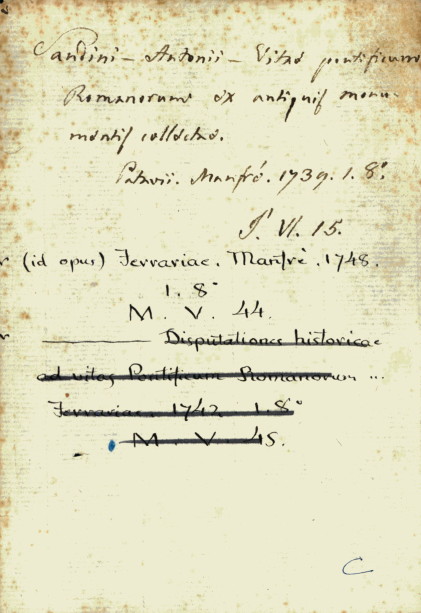 Sandini - Antonii - Vitae pontificum
Romanorum ex antiquis monu-
mentis collectae.
Patavii. Manfré. 1739. 1. 8.°
P. VI. 15.
(id opus) Ferrariae. Manfrè. 1748.
1. 8°
M. V. 44.
Disputationes historicae
ad vitas Pontificum Romanorum ...
Ferrariae. 1742. 1. 8°
M. V. 45.
C